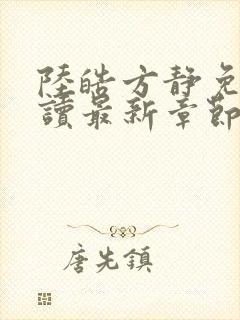 陸皓方静免
讀最新章節
唐先鎮